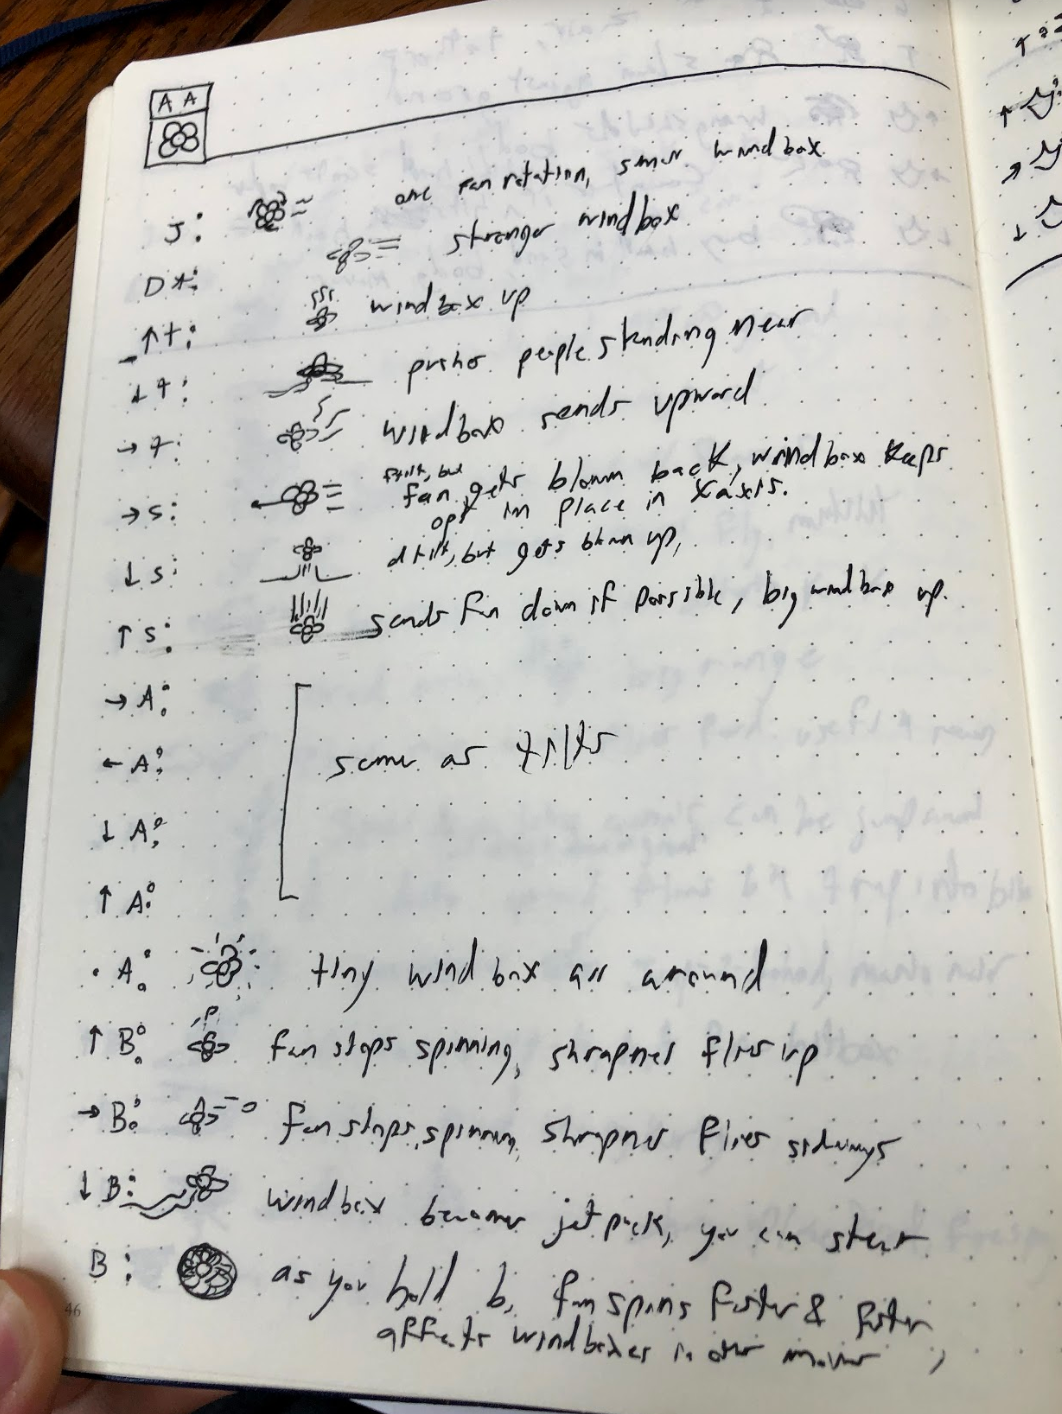 A A
J: one fan rotation, small windbox
D*: stronger windbox
↑t: windbox up
↓t: pushes people standing near
→t: windbox sends upward
→s: ftilt, but fan gets blown back, windbox keeps
opp in place in x axis.
↓s: dtilt, but gets blown up,
↑s: sends fan down if possible, big windbox up.
→A:
←A: same as tilts
↓A:
↑A:
·A: tiny windbox all around
↑B: fan stops spinning, shrapnel flies up
→B: fan stops spinning, shrapnel flies sideways
↓B: windbox becomes jetpack, you can steer
B: as you hold b, fan spins faster & faster
affects windboxes in other moves,
46